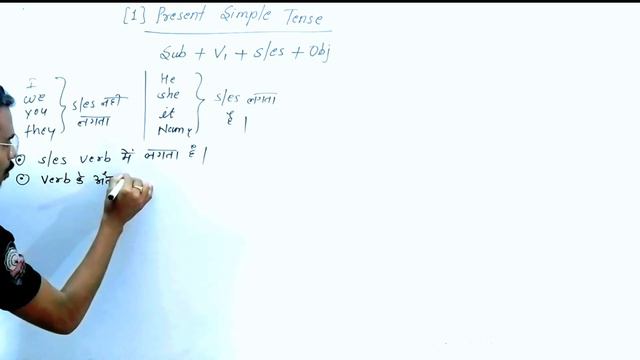 [1] Present Simple Tense
Sub + V₁ + s/es + Obj
I
we
you
they
s/es नही
लगता
He
she
it
Name
s/es लगता
है |
⊙ s/es verb में लगता है |
⊙ verb के अंत